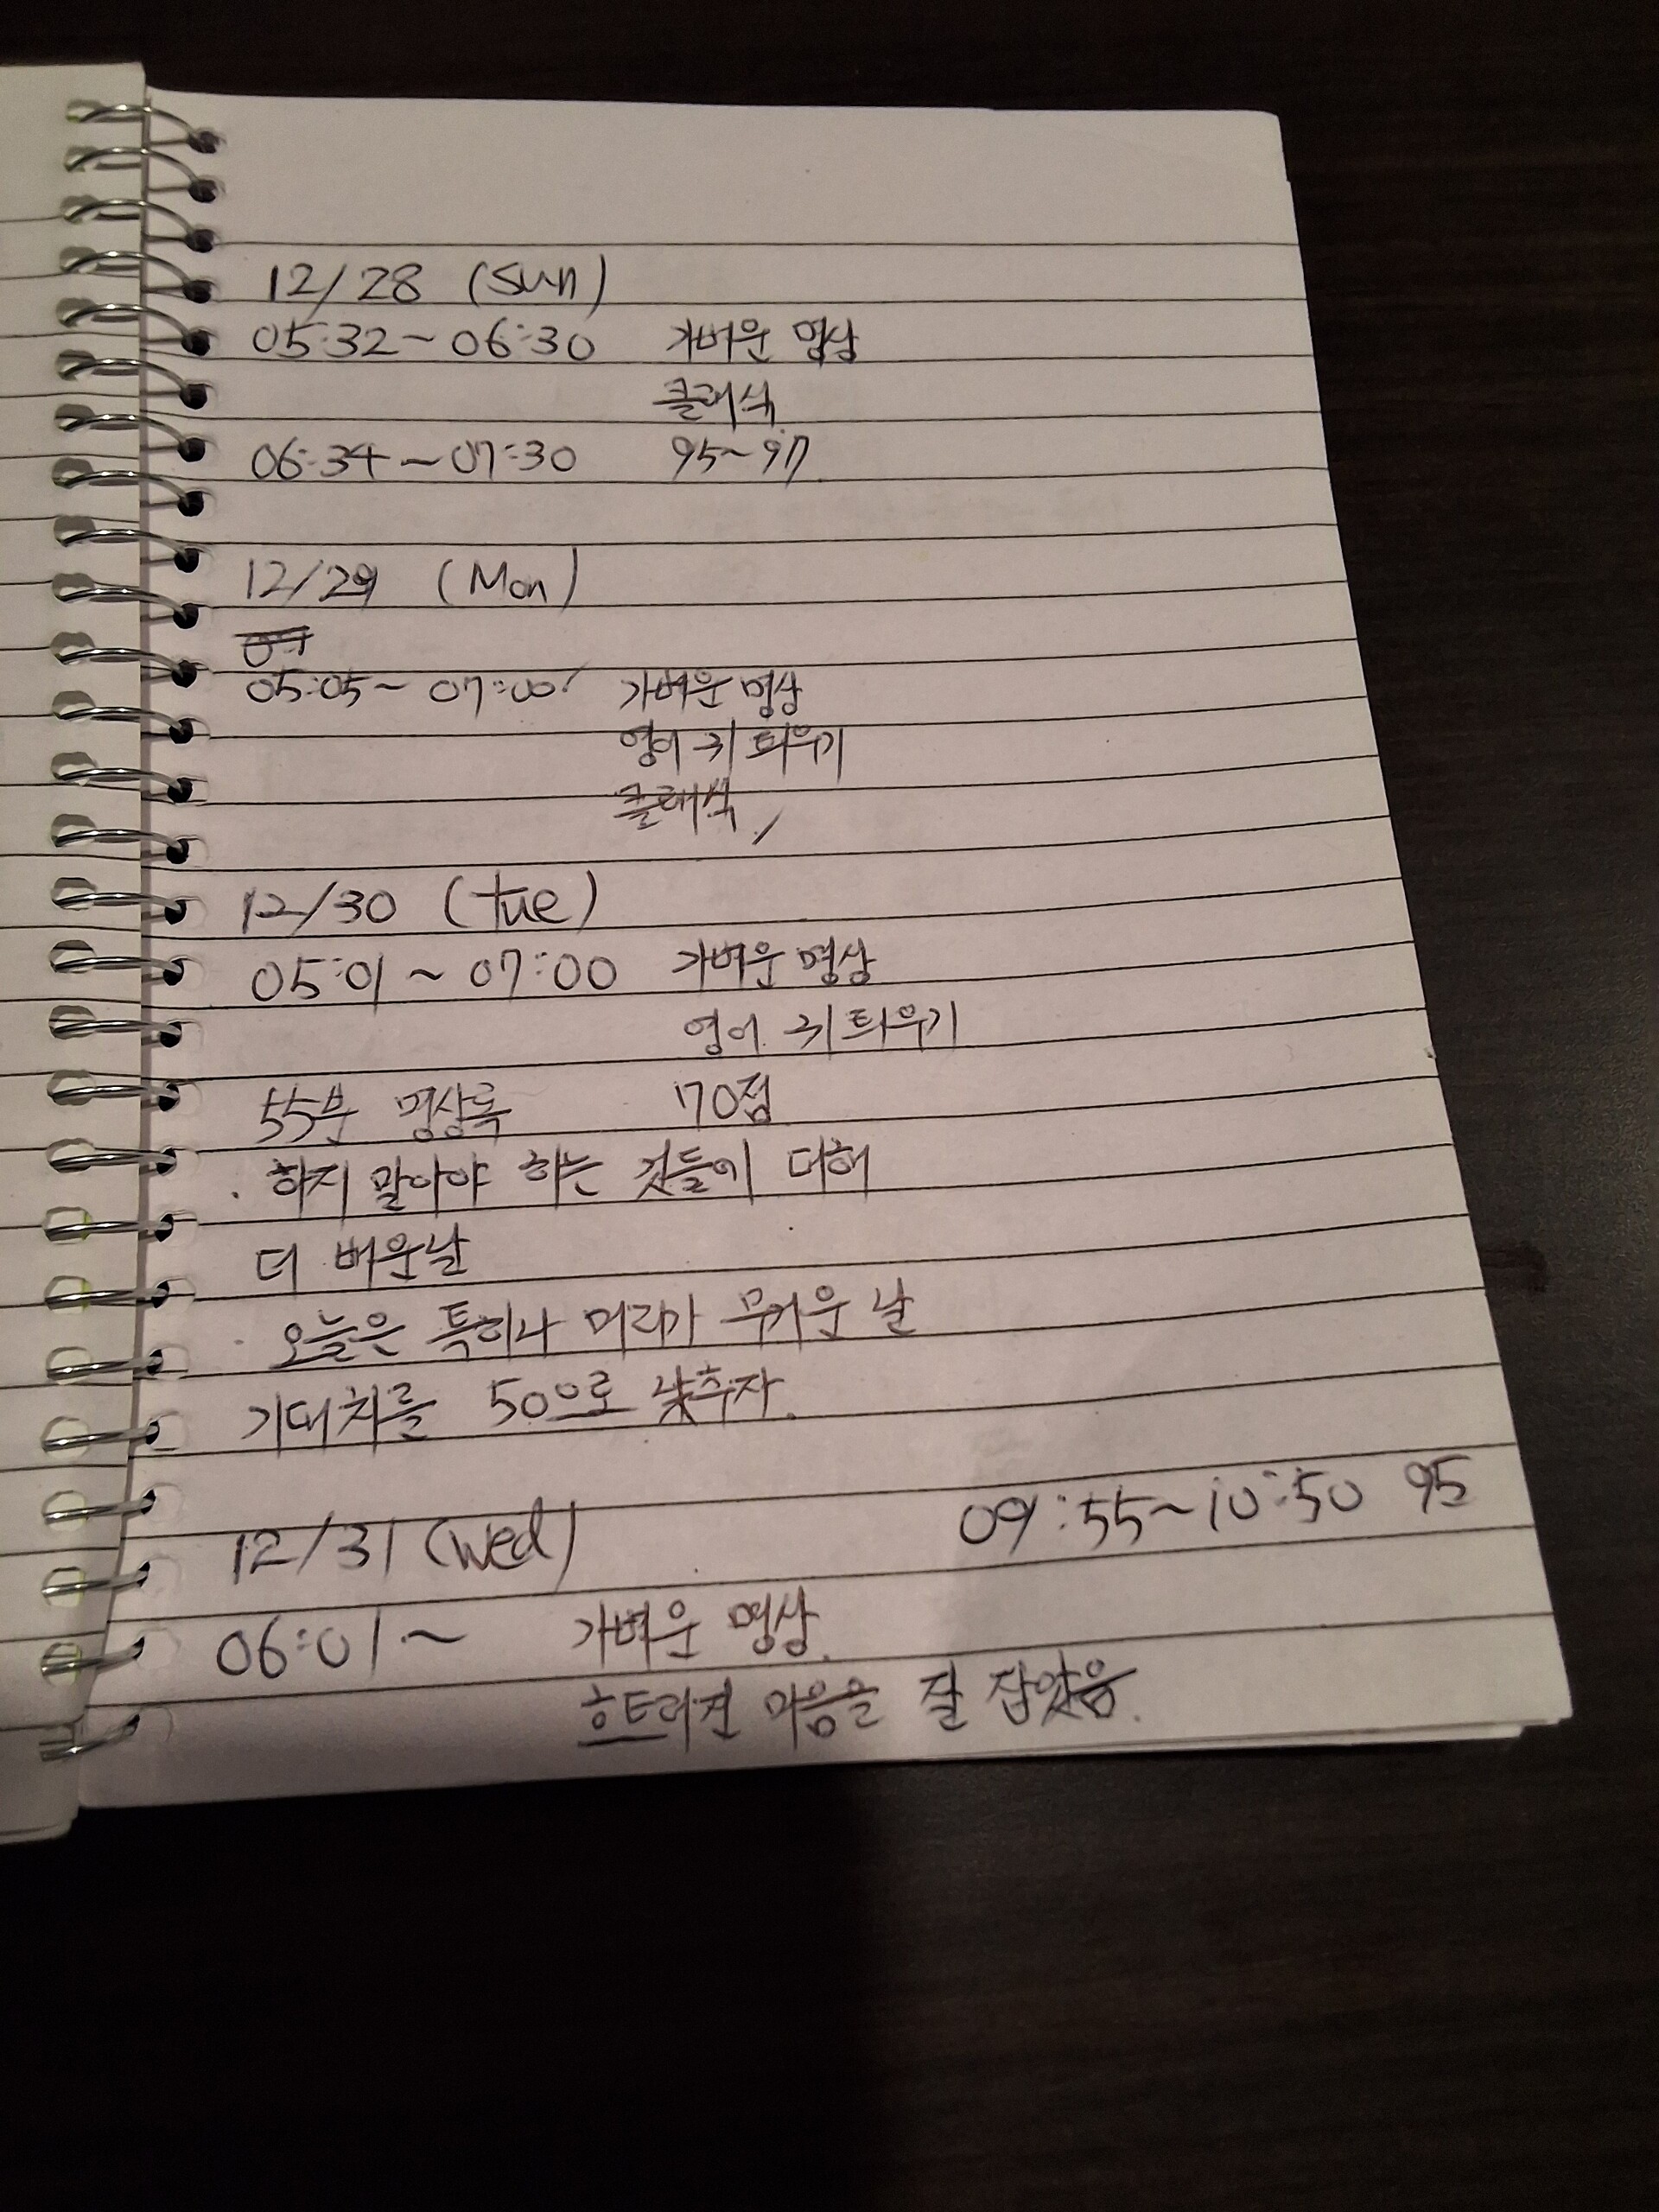 12/28 (Sun)
05:32~06:30 가벼운 명상
클래식
06:34~07:30 95~97
12/29 (Mon)
05:05~07:00 가벼운 명상
영어 귀 틔우기
클래식
12/30 (tue)
05:01~07:00 가벼운 명상
영어 귀 틔우기
55분 명상록 70점
· 하지 말아야 하는 것들에 대해
더 배운날
· 오늘은 특히나 머리가 무거운 날
기대치를 50으로 낮추자.
09:55~10:50 95
12/31 (Wed)
06:01~ 가벼운 명상.
흐트러진 마음을 잘 잡았음.